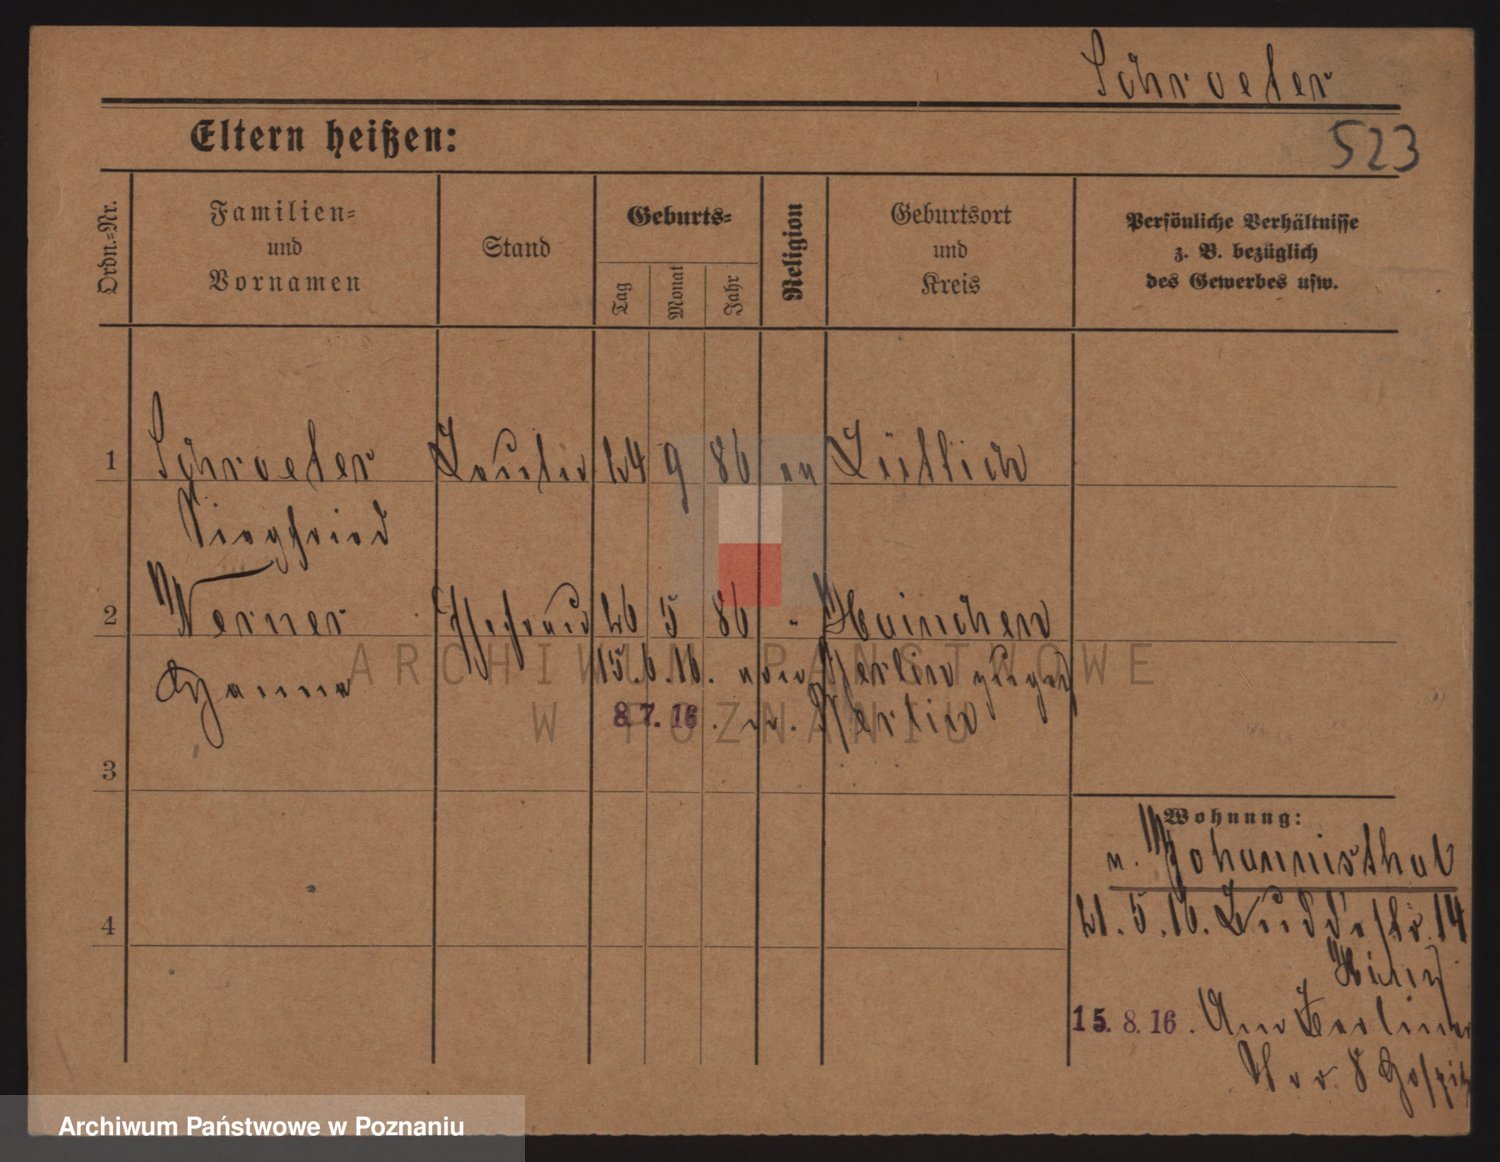 Schroeter
Eltern heißen:
523
Ordn.=Nr.
Familien=
und
Vornamen
Stand
Geburts=
Tag
Monat
Jahr
Religion
Geburtsort
und
Kreis
Persönliche Verhältnisse
z. B. bezüglich
des Gewerbes usw.
1 Schroeter 24 9 86 Lüttich
Siegfried
2 Werner Ehefrau 26 5 86 " Hainchen
Hanna
15. 6. 16. von Berlin zurück
8.7.16. n. Berlin
3
4
Wohnung:
v. Johannisthal
21. 5. 16. 14
15. 8. 16. Am Berliner
Tor 8
ARCHIWUM PAŃSTWOWE
W POZNANIU
Archiwum Państwowe w Poznaniu